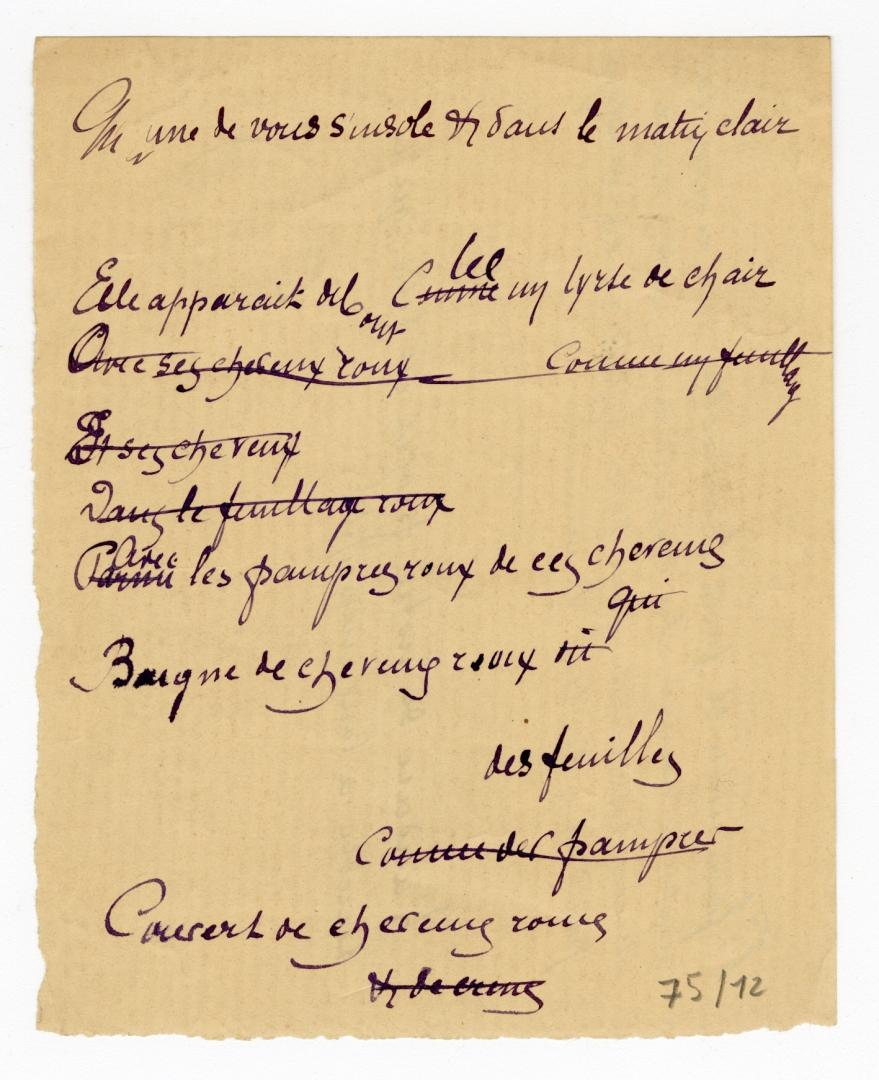 une de vous s'insole & dans le matin clair
Elle apparait debout tel
Comme un tyrse de chair
Avec ses cheveux roux comme un feuillage
Et ses cheveux
Dans le feuillage roux
Avec
Parmi les pampres roux de ces cheveux
qui
Baigné de cheveux roux
des feuilles
Comme des pampres
Couvert de cheveux roux
& de
75/12